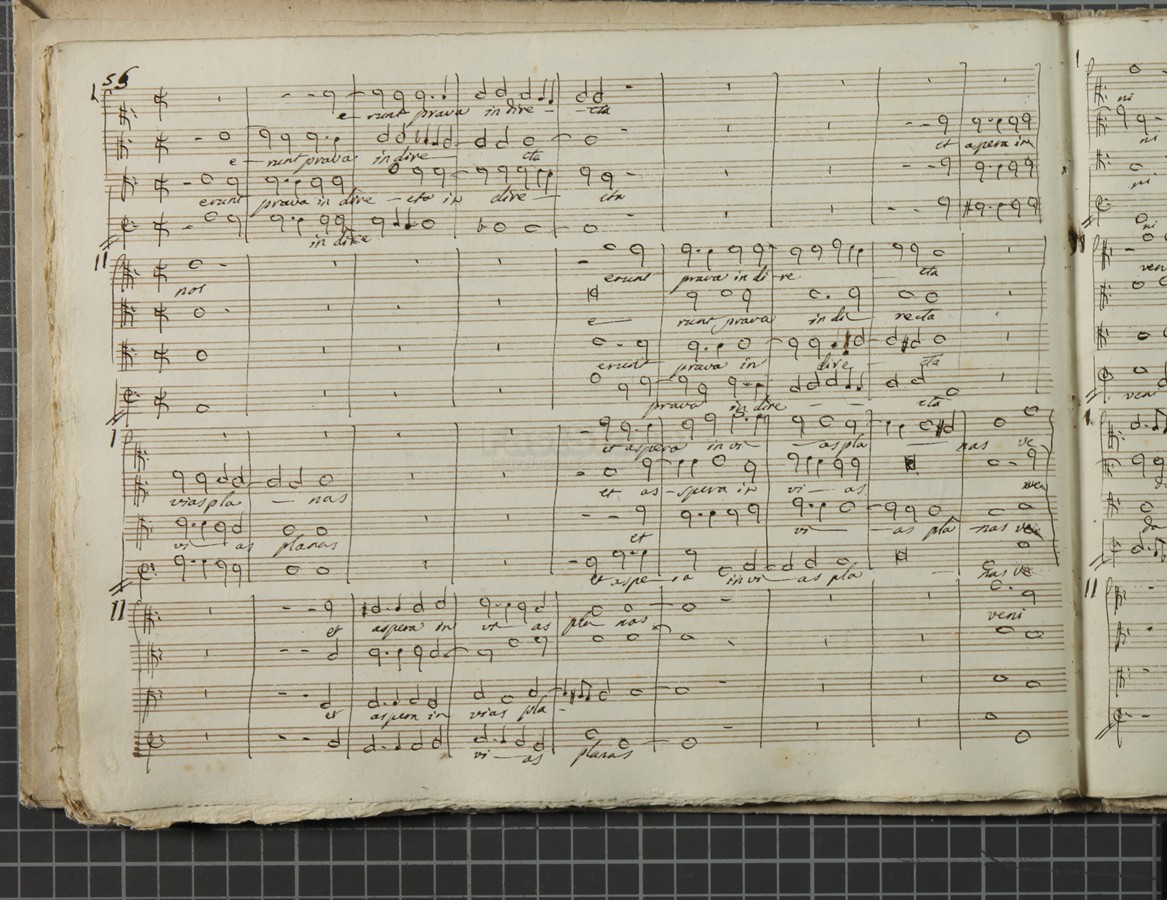 56
I
e runt prava in dire cta
e runt prava in dire cta
erunt prava in dire cta in dire cta
in dire
II
nos erunt prava in di re cta
e runt prava in di recta
erunt prava in dire cta
prava in dire cta
et aspera in
I
et aspera in vi as pla nas ve
vias pla nas et as spera in vi as
vi as planas et vi as pla nas
et aspe ra in vi as pla nas ve
II
et aspera in vi as pla nas veni
et aspera in vias pla
vi as planas